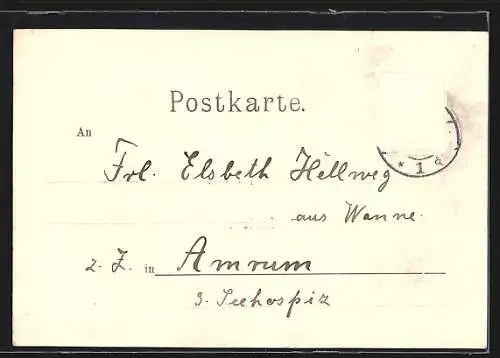 Postkarte.
* 1 a
An
Frl. Elsbeth Hellweg
aus Wanne.
z. Z. in Amrum
3. Seehospiz